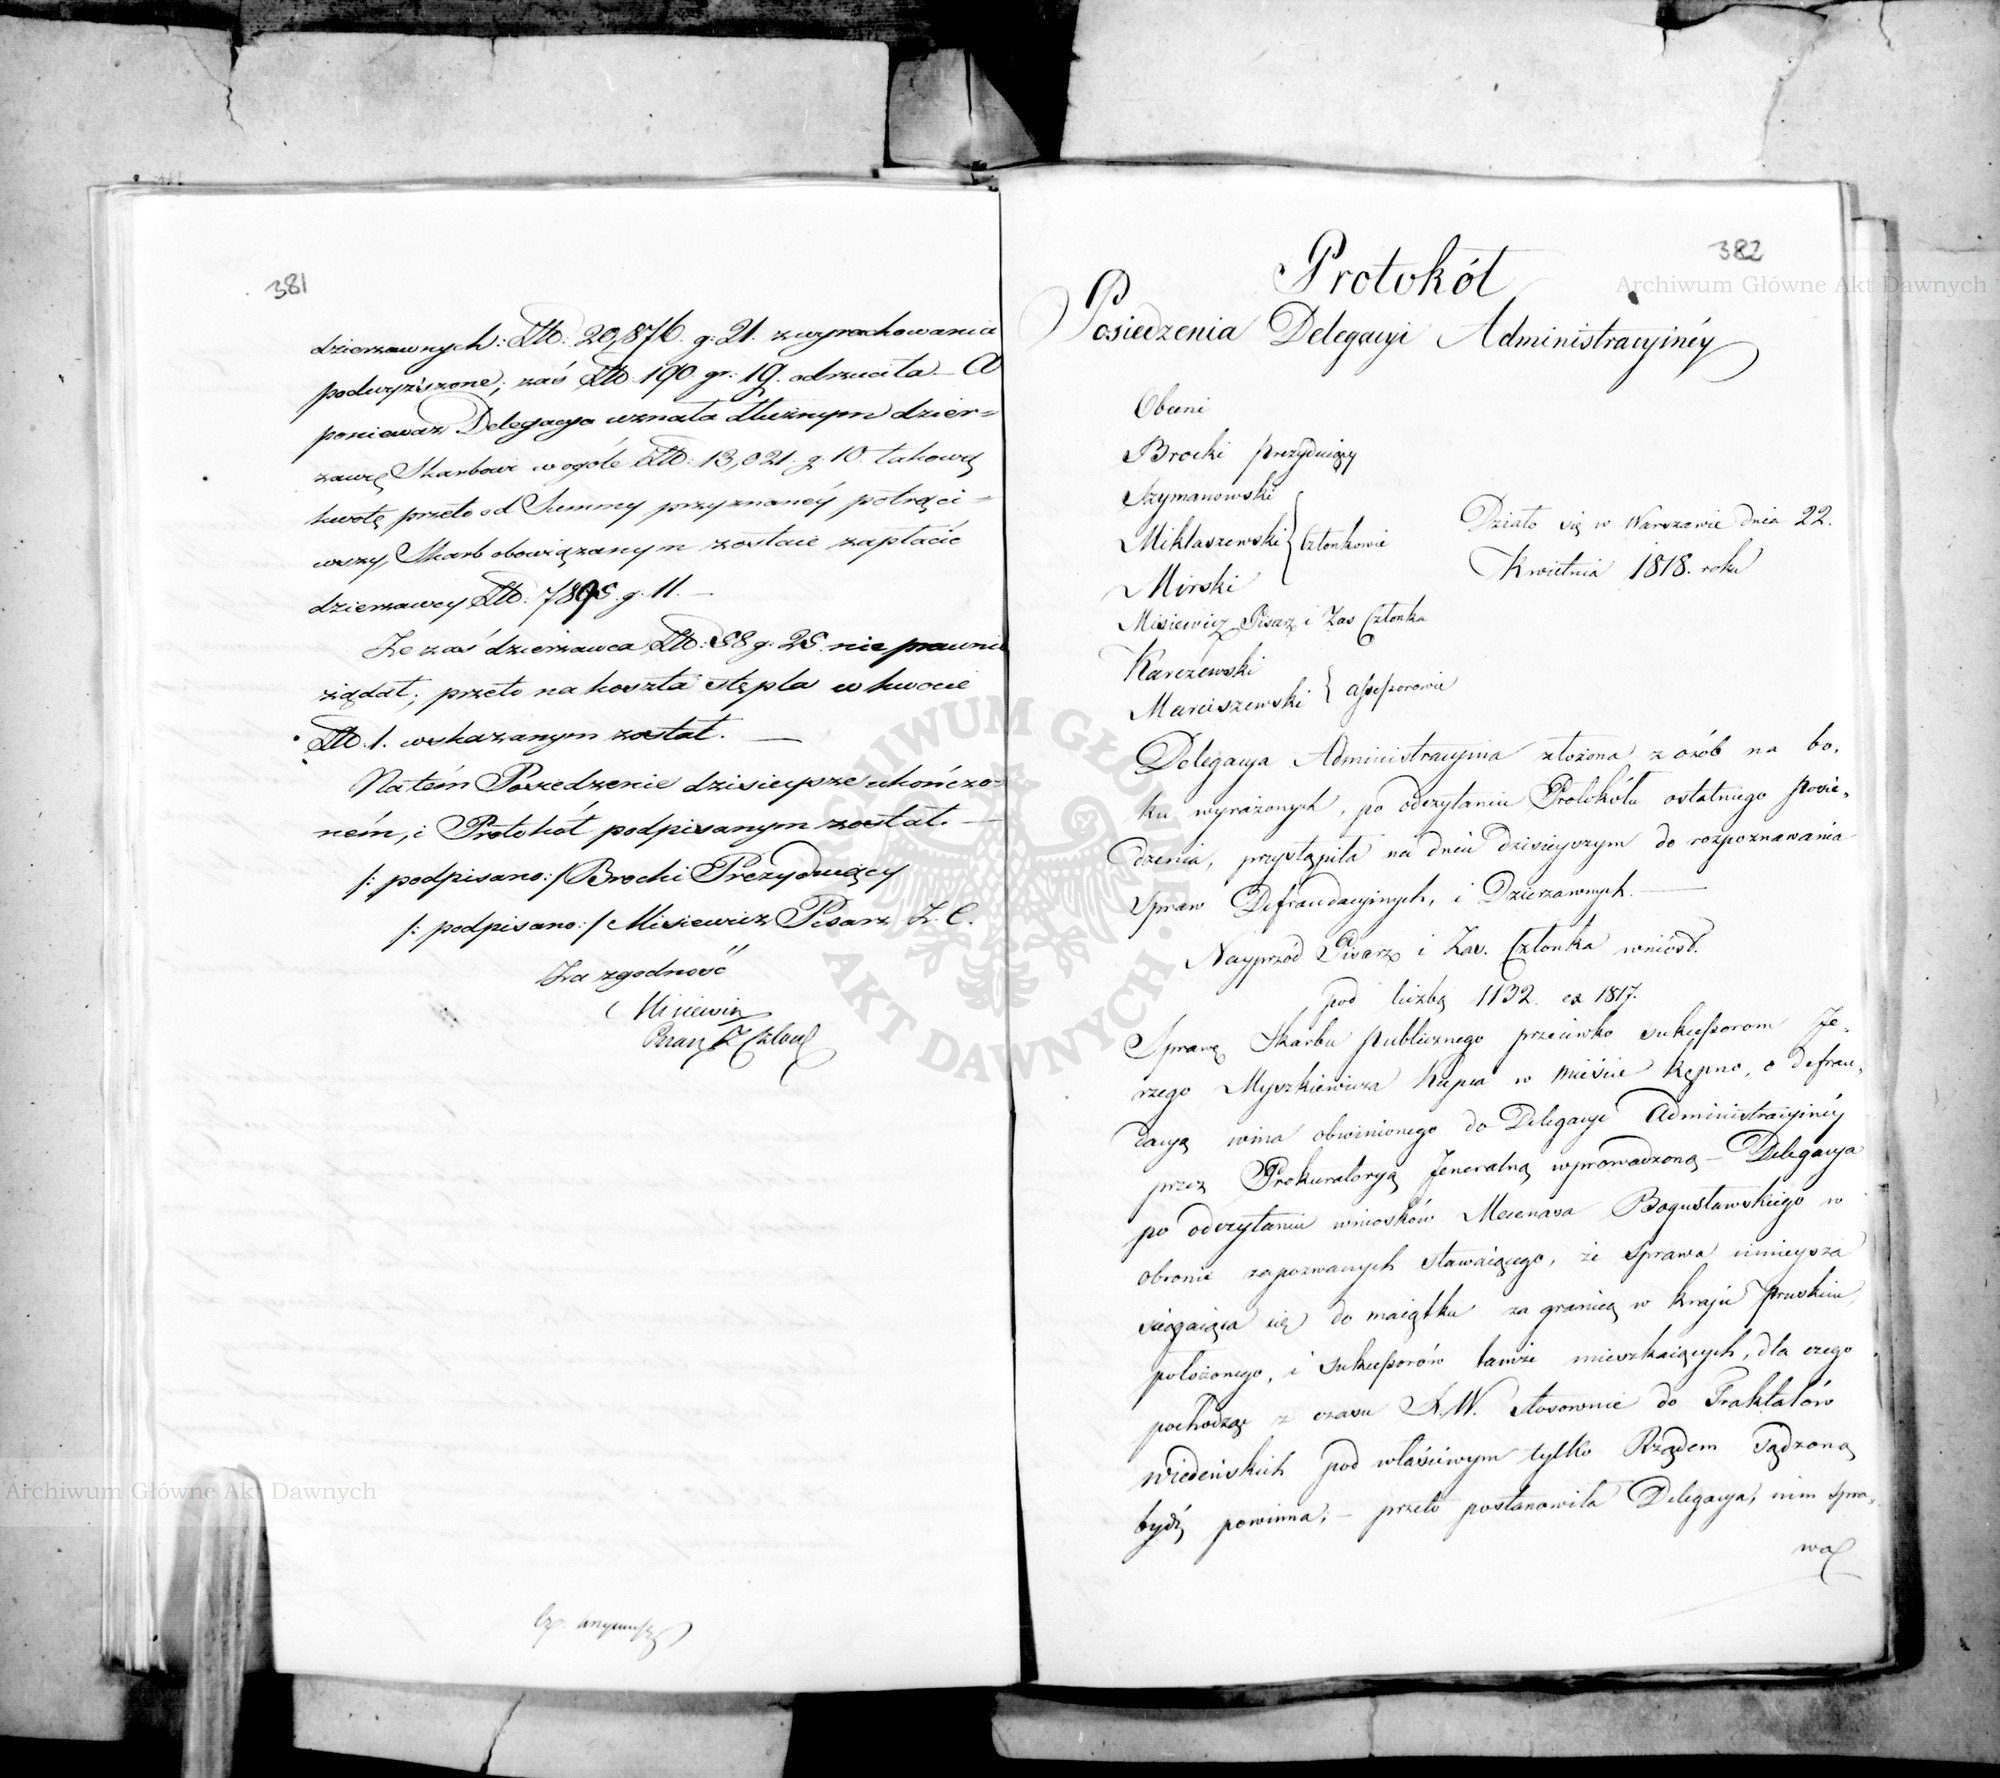 381
dzierzawnych: Złt. 20,876. g: 21. z wyrachowania
podwyższone; zaś Złt. 190. gr: 19. odrzuciła. – A
ponieważ Delegacya uznała dłużnym dzier=
zawcę Skarbowi w ogóle Złt: 13,021. g. 10. takową
kwotę przeto od Summy przyznanéy potrąci=
wszy, Skarb obowiązanym zostaie zapłacić
dzierzawcy Złt. g. 11. –
Że zaś dzierżawca Złt: 58 g: 25. nie prawnie
ządał; przeto na koszta stępla w kwocie
Złt. 1. wskazanym został. —
Na tém Posiedzenie dzisieysze ukończo=
ném, i Protokół podpisanym został. —
/: podpisano: / Brocki Prezyduiący
/: podpisano: / Misiewicz Pisarz Z. C.
Za zgodność
Misiewicz
Pisarz Z Człon
382
Protokół
Posiedzenia Delegacyi Administracyinéy
Obecni
Brocki prezyduiący
Szymanowski
Miklaszewski } Członkowie
Mirski
Misiewicz Pisarz i Zas Członka
Karczewski
Marciszewski } assessorowie
Działo się w Warszawie dnia 22.
Kwietnia 1818. roku
Delegacya Administracyina złożona z osób na bo,
ku wyrażonych, po odczytaniu Protokółu ostatniego posie,
dzenia, przystąpiła na dniu dzisieyszym do rozpoznawania
Spraw Defraudacyinych, i Dzierzawnych. —
Nayprzód Pisarz i Zas. Członka wniósł.
pod liczbą 1132. ex 1817.
Sprawę Skarbu publicznego przeciwko sukcessorom Je,
rzego Myszkiewicza kupca w mieście Kępno, o defrau,
dacyą wina obwinionego do Delegacyi Administracyinéy
przez Prokuratoryą Jeneralną wprowadzoną – Delegacya
po odczytaniu wniosków Mecenasa Bogusławskiego w
obronie zapozwanych stawaiącego, że sprawa ninieysza
ściągaiąca się do maiątku za granicą w kraju pruskim
położonego, i sukcessorów tamże mieszkaiących, dla czego
pochodząc z czasu X. W. stosownie do Traktatów
wiedeńskich pod właściwym tylko Rządem sądzoną
bydź powinna; – przeto postanowiła Delegacya, nim spra,
wa
Archiwum Główne Akt Dawnych
Archiwum Główne Akt Dawnych
ARCHIWUM GŁÓWNE AKT DAWNYCH